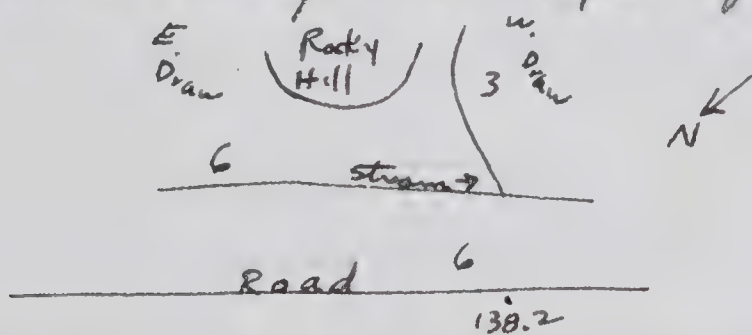 E. Draw
Rocky Hill
W. Draw
3
N
6
stream →
6
Road
138.2